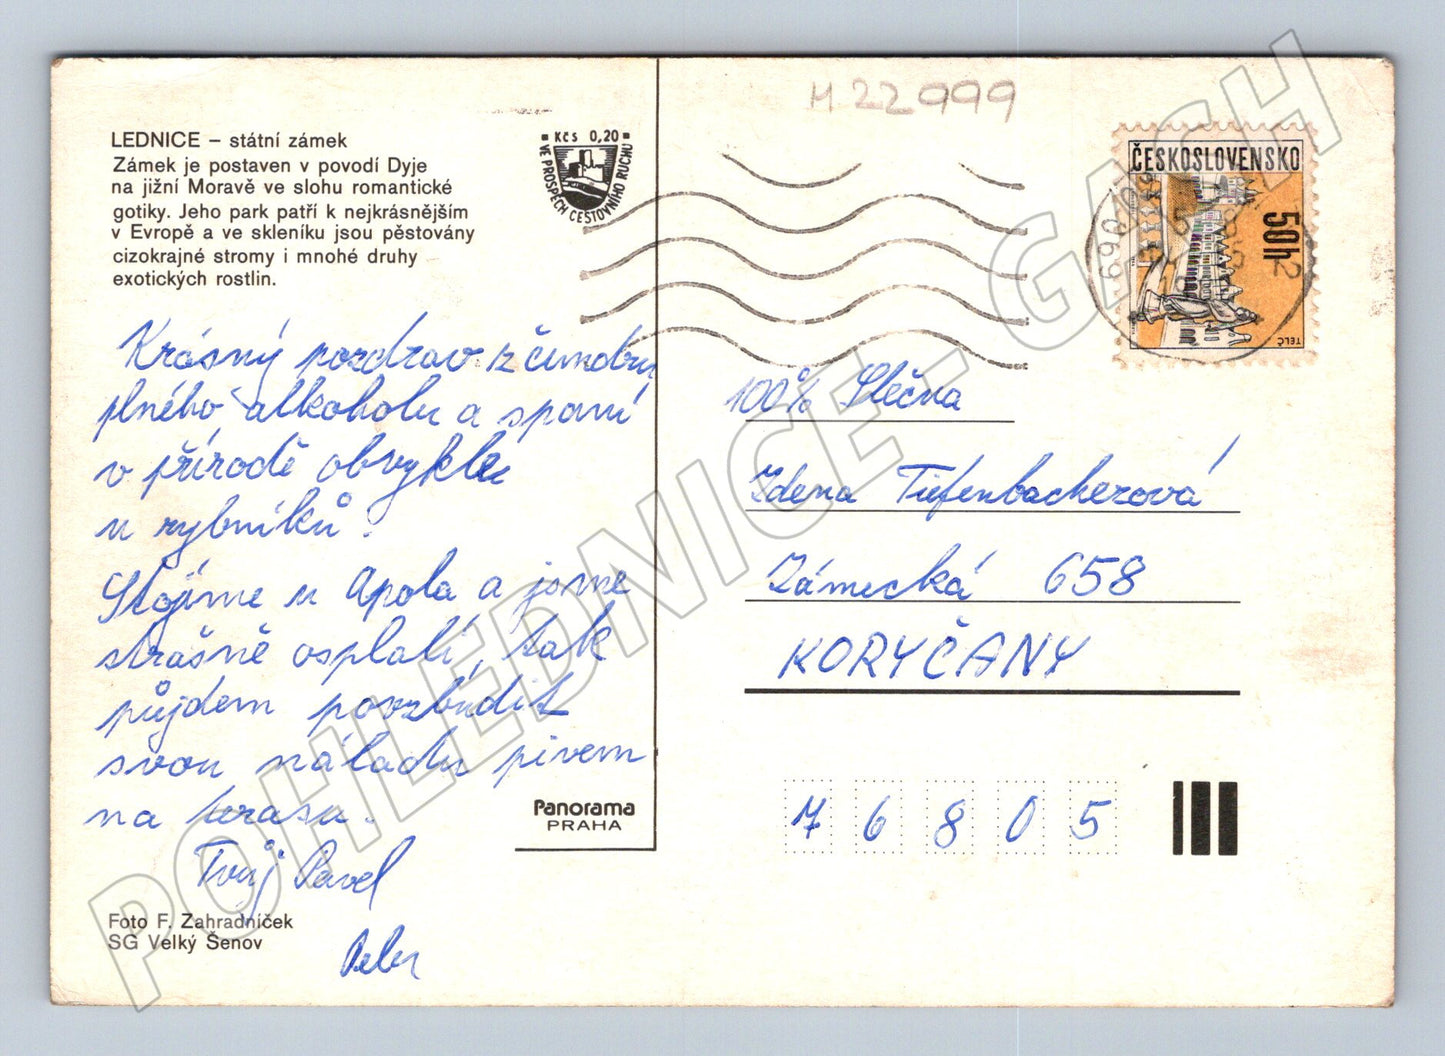 M 22999
LEDNICE – státní zámek
Zámek je postaven v povodí Dyje
na jižní Moravě ve slohu romantické
gotiky. Jeho park patří k nejkrásnějším
v Evropě a ve skleníku jsou pěstovány
cizokrajné stromy i mnohé druhy
exotických rostlin.
Kčs 0,20
VE PROSPĚCH CESTOVNÍHO RUCHU
ČESKOSLOVENSKO
50h
TELČ
690 02
Krásný pozdrav z čundru
plného alkoholu a spaní
v přírodě obvykle
u rybníků.
Stojíme u Apola a jsme
strašně osplalí, tak
půjdem povzbudit
svou náladu pivem
na terasu.
Tvůj Pavel
100% Slečna
Zdena Tiefenbacherová
Zámecká 658
KORYČANY
76805
Panorama
PRAHA
Foto F. Zahradníček
SG Velký Šenov
POHLEDNICE - GASH